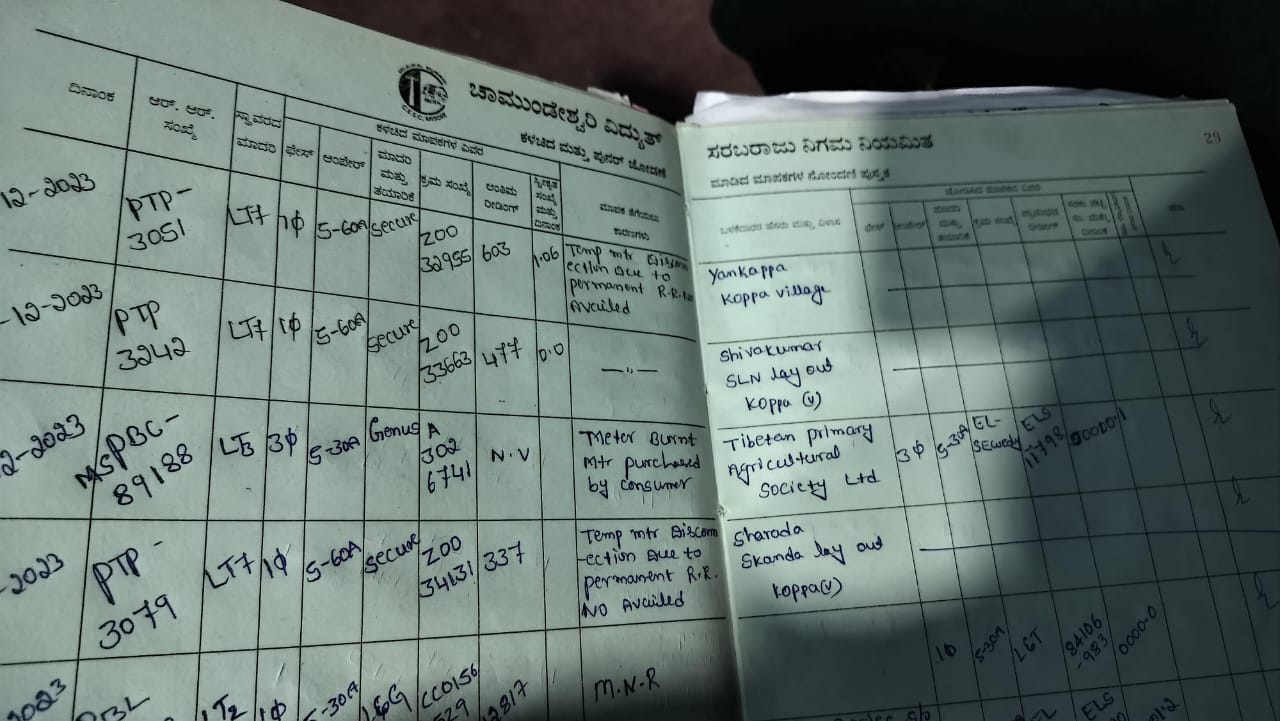 ಚಾಮುಂಡೇಶ್ವರಿ ವಿದ್ಯುತ್
ಕಳಚಿದ ಮತ್ತು ಪುನರ್ ಜೋಡಣೆ
ದಿನಾಂಕ
ಆರ್. ಆರ್.
ಸಂಖ್ಯೆ
ಸ್ಥಾವರದ
ಮಾದರಿ
ಕಳಚಿದ ಮಾಪಕಗಳ ವಿವರ
ಫೇಸ್
ಆಂಪೇರ್
ಮಾದರಿ
ಮತ್ತು
ತಯಾರಿಕೆ
ಕ್ರಮ ಸಂಖ್ಯೆ
ಅಂತಿಮ
ರೀಡಿಂಗ್
ಸಂಖ್ಯೆ
ಮತ್ತು
ದಿನಾಂಕ
ಮಾಪಕ ತೆಗೆಯಲು
ಕಾರಣಗಳು
12-2023
PTP-
3051
LT7
1ϕ
5-60A
secure
Z00
32955
603
1.06
Temp mtr Discon
ection Due to
permanent R.R.No
Availed
-12-2023
PTP
3242
LT7
1ϕ
5-60A
secure
Z00
33663
477
0.0
—"—
2-2023
MSPBC-
89188
LT3
3ϕ
5-30A
Genus
A
302
6741
N.V
Meter Burnt
Mtr purchased
by consumer
-2023
PTP -
3079
LT7
1ϕ
5-60A
secure
Z00
34131
337
Temp mtr Discon
-ection Due to
permanent R.R.
NO Availed
2023
LT2
1ϕ
5-30A
L&G
CC0156
529
2817
M.N.R
ಸರಬರಾಜು ನಿಗಮ ನಿಯಮಿತ
29
ಮಾಡಿದ ಮಾಪಕಗಳ ನೋಂದಣಿ ಪುಸ್ತಕ
ಬಳಕೆದಾರರ ಹೆಸರು ಮತ್ತು ವಿಳಾಸ
ಫೇಸ್
ಮಾದರಿ
ಮತ್ತು
ತಯಾರಿಕೆ
ಕ್ರಮ ಸಂಖ್ಯೆ
Yankappa
Koppa village
Shivakumar
SLN lay out
Koppa (V)
Tibetan primary
Agricultural
Society Ltd
3ϕ
5-30A
EL-
SEwedy
ELS
11798
000000.1
Sharada
Skanda lay out
Koppa(V)
1ϕ
5-30A
LGT
84106
-983
0000.0
ELS